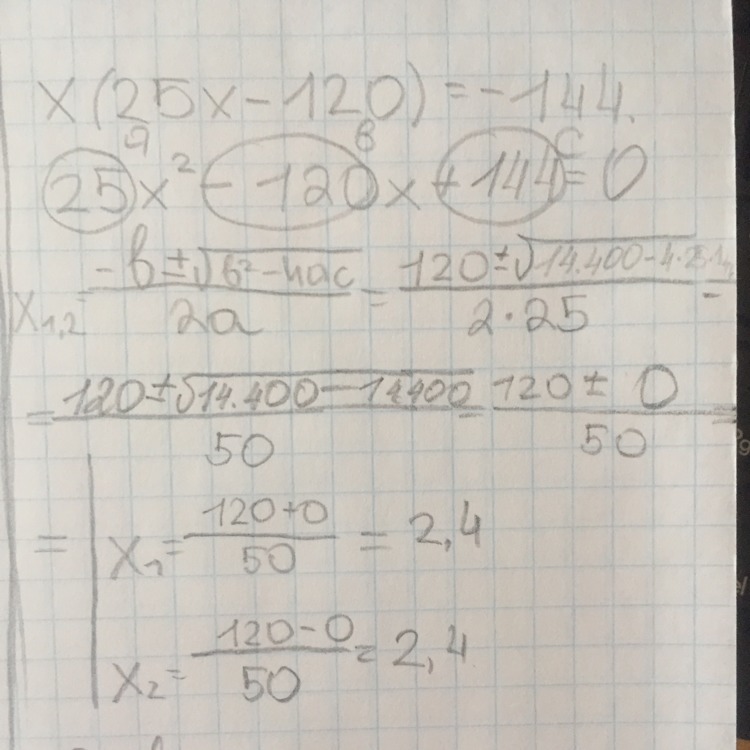 x(25x-120)=-144.
a в c
25x²-120x+144=0
x₁,₂=(-в±√(в²-4ac))/(2a)=(120±√(14.400-4·25·1))/(2·25)=
=(120±√(14.400-14400))/50=(120±0)/50=
=|x₁=(120+0)/50=2,4
x₂=(120-0)/50=2,4